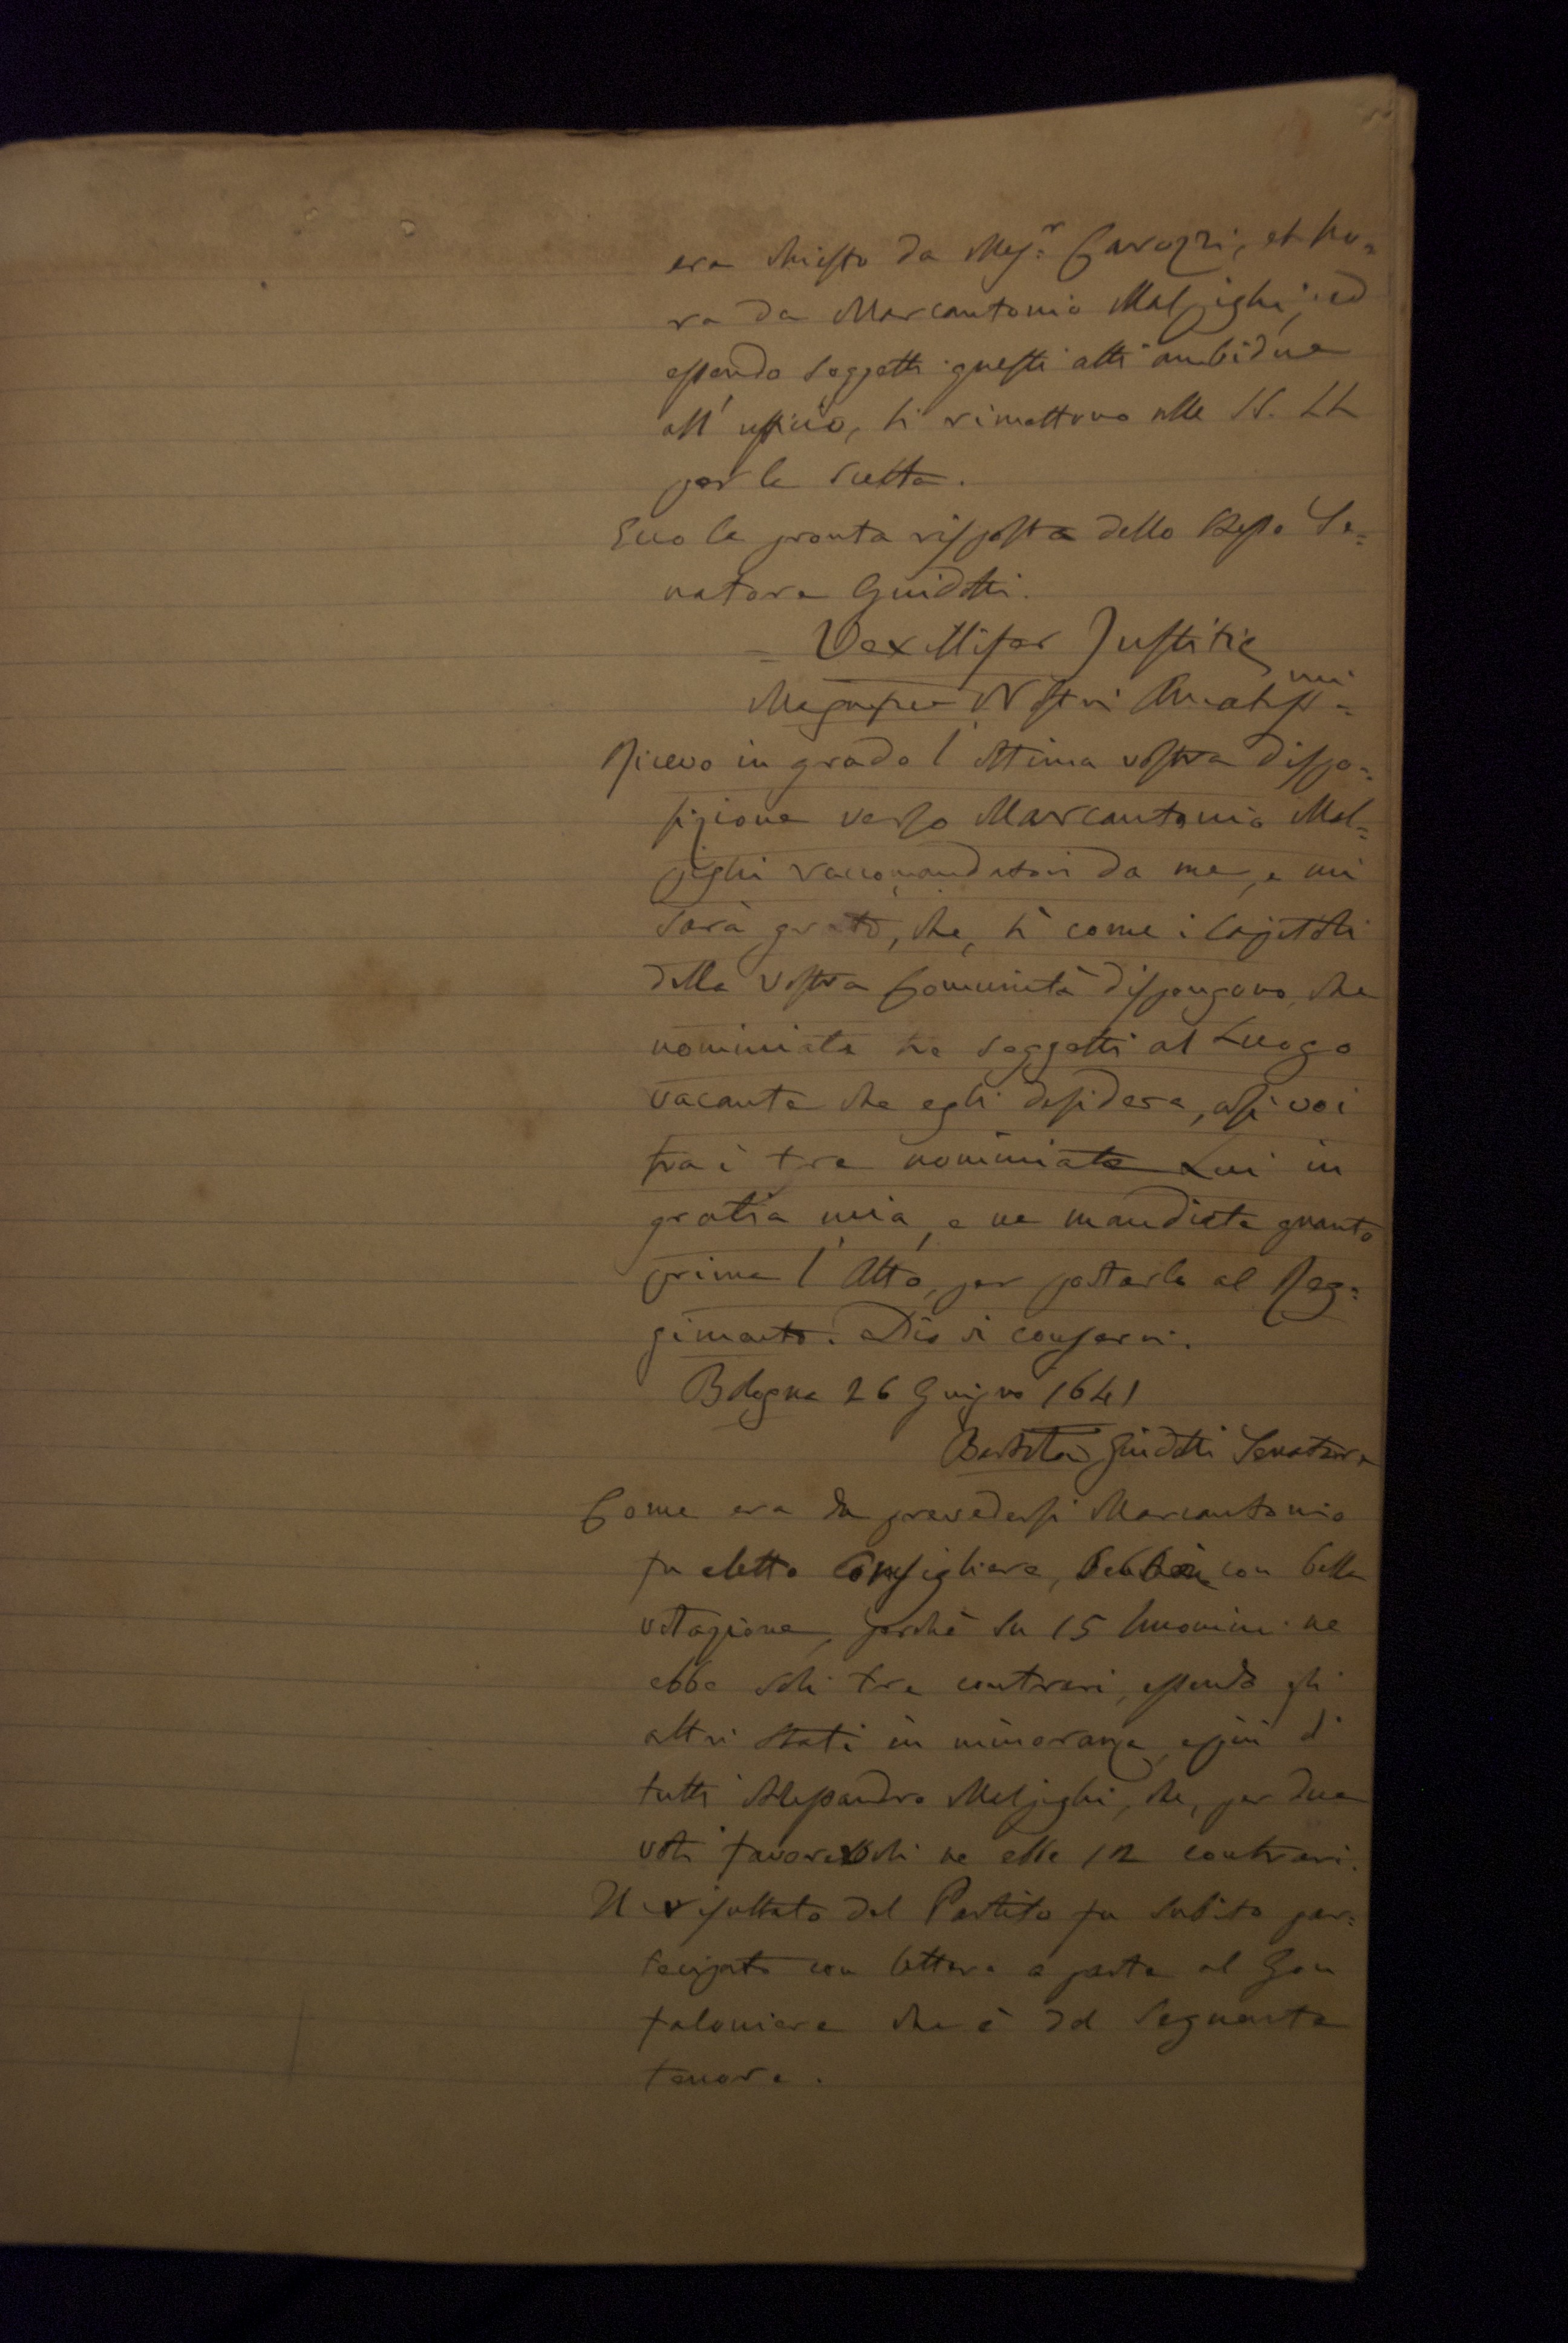 era chiesto da Mes.r Carozzi, et ho=
ra da Marcantonio Malpighi; ed
essendo soggetti questi atti ambidue
all' ufficio, si rimettono alle SS. LL
per la scelta.
Ecco la pronta risposta dello stesso Se=
natore Guidotti.
= Vexillifer Justitie
Magnifici Nostri Amatissmi=
Ricevo in grado l'ottima vostra dispo=
sizione verso Marcantonio Mal=
pighi raccomandatovi da me, e mi
sarà grato, che, sì come i Capitoli
della vostra Comunità dispongono, che
nominiate tre soggetti al Luogo
vacante che egli desidera, così voi
fra i tre nominiate Lui in
gratia mia, e ne mandiate quanto
prima l'Atto, per portarlo al Reg=
gimento. Dio vi conservi.
Bologna 26 Giugno 1641
Guidotti Senatore
Come era da prevedersi Marcantonio
fu eletto Consigliere, con bella
votazione, perchè su 15 huomini ne
ebbe soli tre contrari, essendo gli
altri stati in minoranza, e più di
tutti Alessandro Malpighi, che, per due
voti favorevoli ne ebbe 12 contrari.
Il risultato del Partito fu subito par=
tecipato con lettera a parte al Gon
faloniere che è del seguente
tenore.